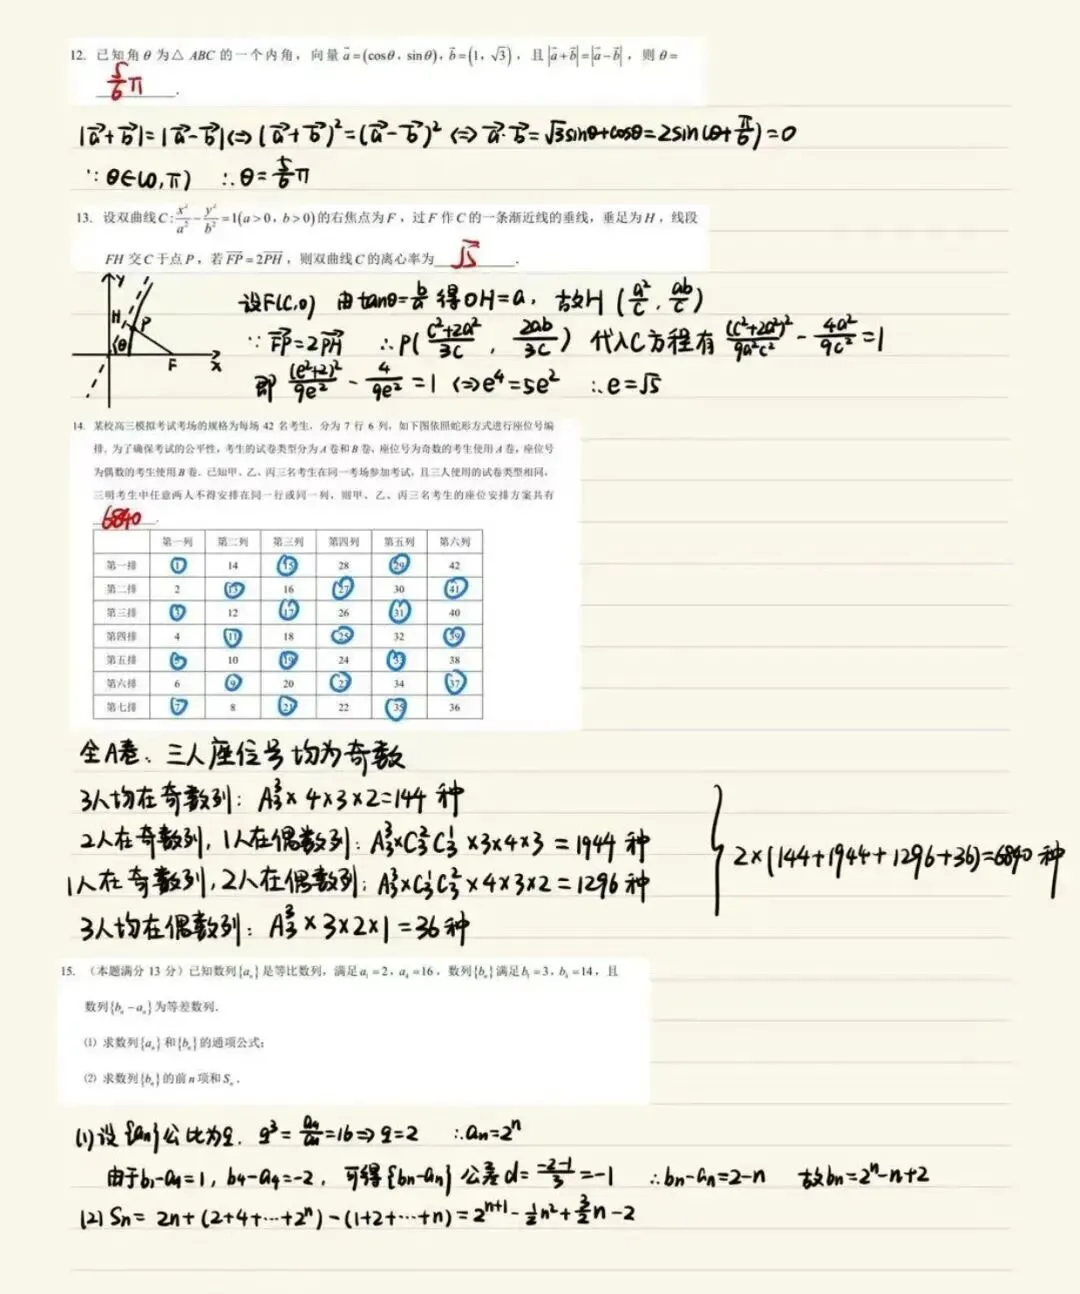 12. 已知角θ为△ABC的一个内角，向量a⃗=(cosθ, sinθ), b⃗=(1, √3)，且|a⃗+b⃗|=|a⃗-b⃗|，则θ=
5/6 π.
|a⃗+b⃗|=|a⃗-b⃗|⇔(a⃗+b⃗)²=(a⃗-b⃗)²⇔a⃗·b⃗=√3sinθ+cosθ=2sin(θ+π/6)=0
∵θ∈(0,π) ∴θ=5/6 π
13. 设双曲线C: x²/a² - y²/b² =1(a>0, b>0)的右焦点为F，过F作C的一条渐近线的垂线，垂足为H，线段
FH交C于点P，若FP⃗=2PH⃗，则双曲线C的离心率为 √5.
y H P θ F x
设F(c,0) 由tanθ=b/a 得OH=a, 故H(a²/c, ab/c)
∵FP⃗=2PH⃗ ∴P((c²+2a²)/3c, 2ab/3c) 代入C方程有 (c²+2a²)²/9a²c² - 4a²/9c² =1
即 (e²+2)²/9e² - 4/9e² =1 ⇔e⁴=5e² ∴e=√5
14. 某校高三模拟考试考场的规格为每场42名考生，分为7行6列，如下图依照蛇形方式进行座位号编
排。为了确保考试的公平性，考生的试卷类型分为A卷和B卷，座位号为奇数的考生使用A卷，座位号
为偶数的考生使用B卷. 已知甲、乙、丙三名考生在同一考场参加考试，且三人使用的试卷类型相同，
三明考生中任意两人不得安排在同一行或同一列，则甲、乙、丙三名考生的座位安排方案共有
6840.
第一列 第二列 第三列 第四列 第五列 第六列
第一排 1 14 15 28 29 42
第二排 2 13 16 27 30 41
第三排 3 12 17 26 31 40
第四排 4 11 18 25 32 39
第五排 5 10 19 24 33 38
第六排 6 9 20 23 34 37
第七排 7 8 21 22 35 36
全A卷: 三人座位号均为奇数
3人均在奇数列: A₃³×4×3×2=144种
2人在奇数列, 1人在偶数列: A₃³×C₃²C₃¹×3×4×3=1944种
1人在奇数列, 2人在偶数列: A₃³×C₃¹C₃²×4×3×2=1296种
3人均在偶数列: A₃³×3×2×1=36种
2×(144+1944+1296+36)=6840种
15. （本题满分13分）已知数列{aₙ}是等比数列，满足a₁=2, a₄=16，数列{bₙ}满足b₁=3, b₄=14，且
数列{bₙ-aₙ}为等差数列.
⑴ 求数列{aₙ}和{bₙ}的通项公式;
⑵ 求数列{bₙ}的前n项和Sₙ.
(1)设{aₙ}公比为q. q³=a₄/a₁=16⇒q=2 ∴aₙ=2ⁿ
由于b₁-a₁=1, b₄-a₄=-2, 可得{bₙ-aₙ}公差d=(-2-1)/3=-1 ∴bₙ-aₙ=2-n 故bₙ=2ⁿ-n+2
(2)Sₙ=2n+(2+4+⋯+2ⁿ)-(1+2+⋯+n)=2ⁿ⁺¹-1/2 n²+3/2 n-2